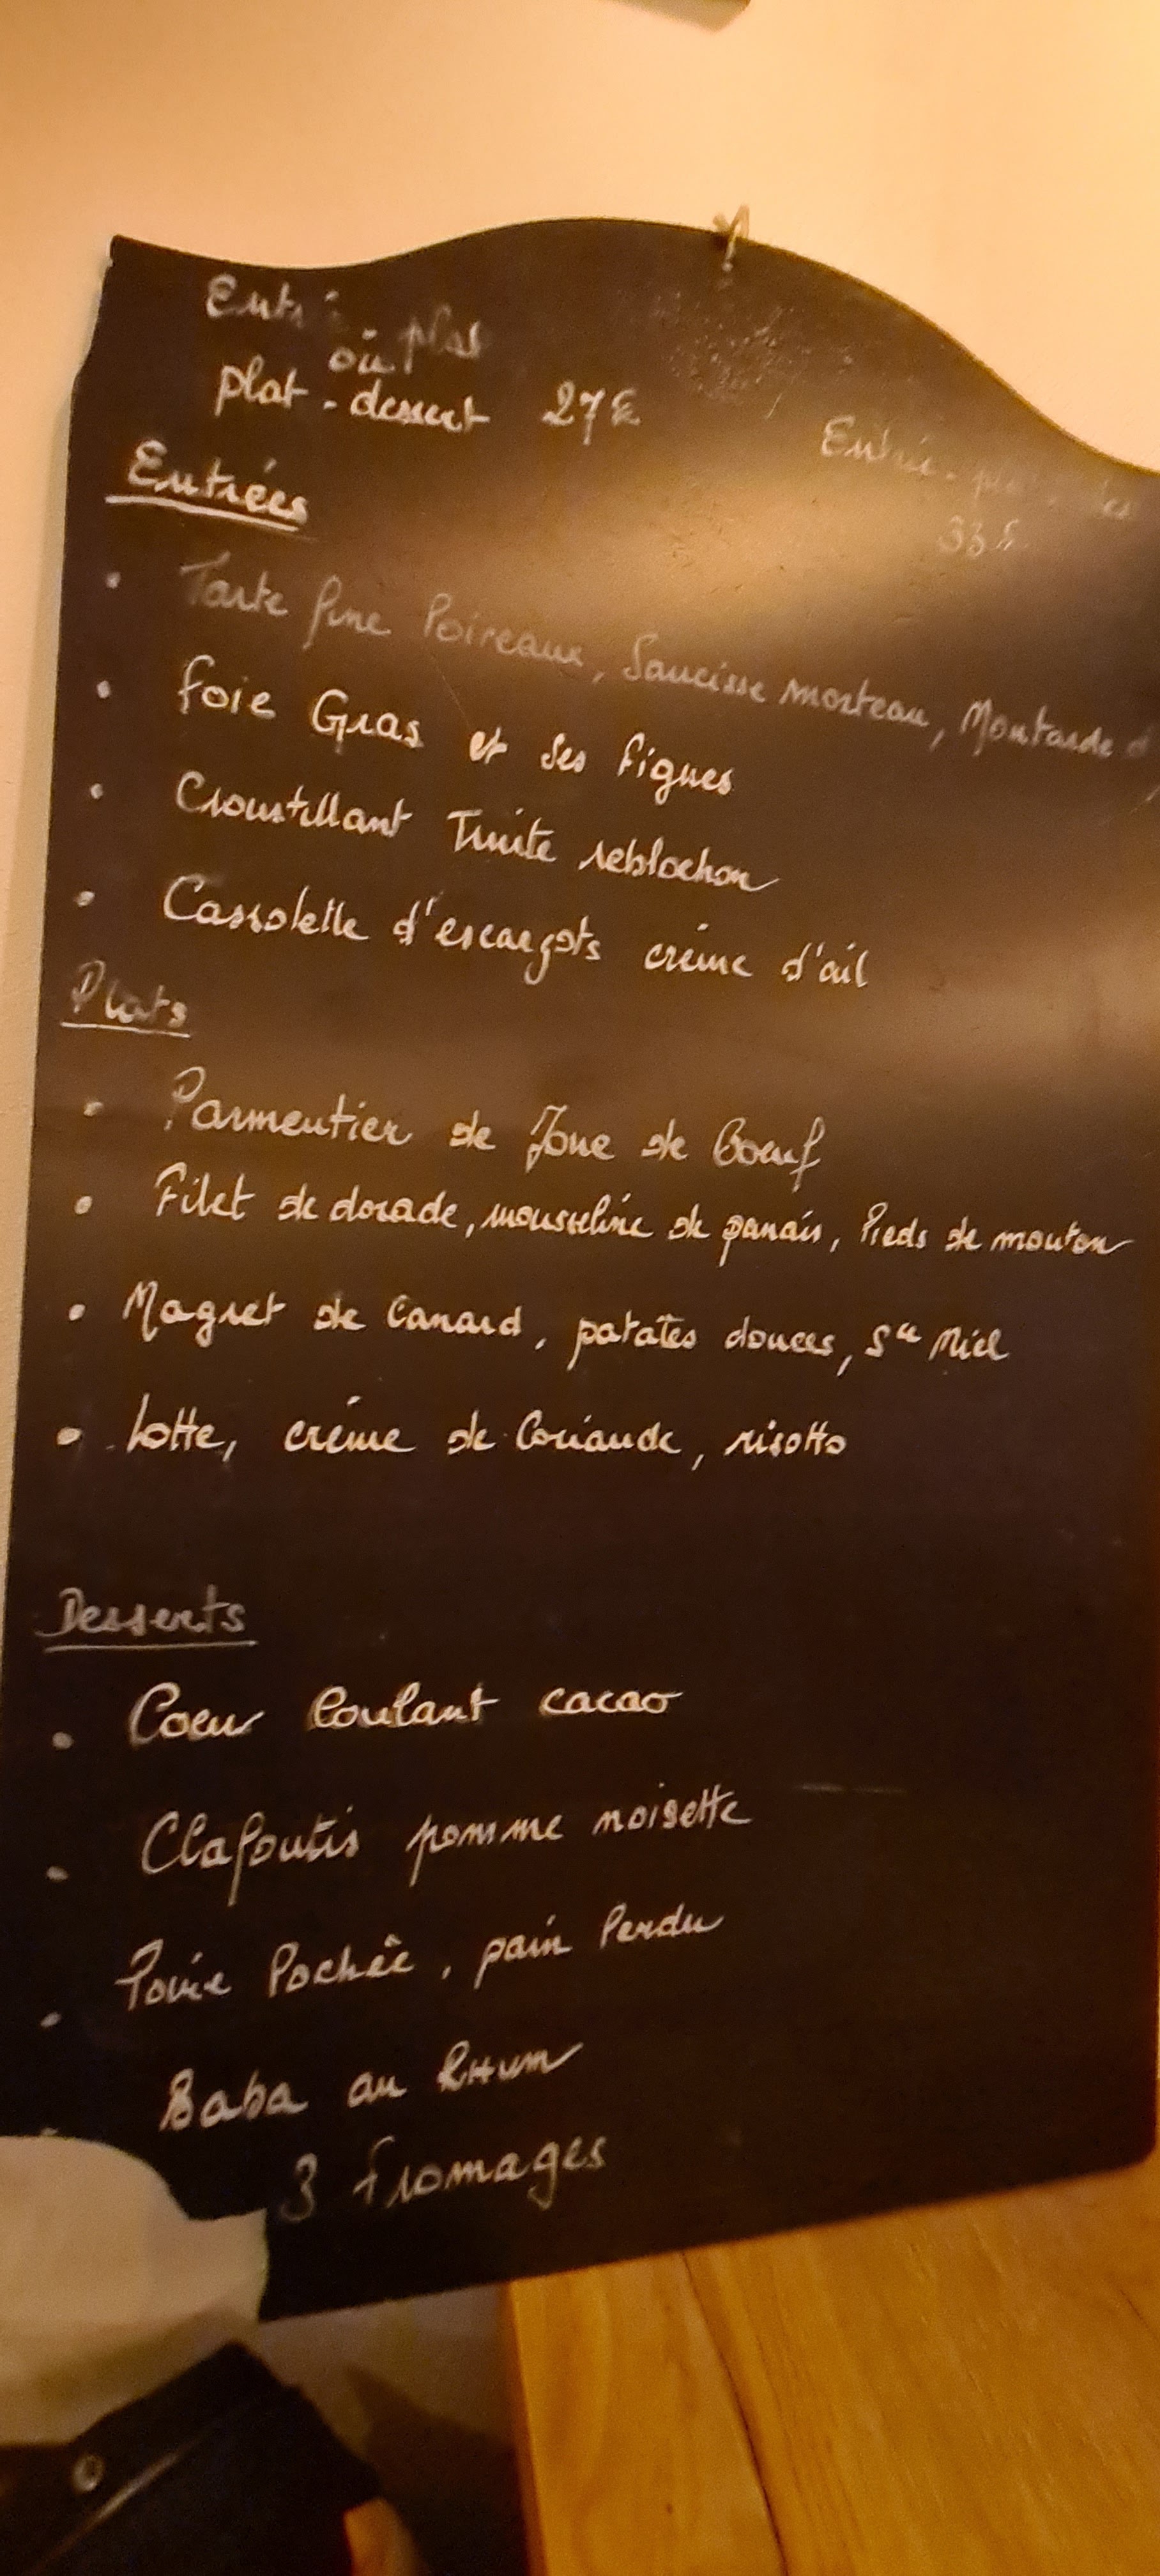 Entrée - plat
ou
plat - dessert 27€
Entrée - plat
33€
Entrées
• Tarte fine Poireaux, Saucisse morteau, Moutarde
• Foie Gras et ses figues
• Croustillant Truite reblochon
• Cassolette d'escargots crème d'ail
Plats
• Parmentier de Joue de Boeuf
• Filet de dorade, mousseline de panais, Pieds de mouton
• Magret de Canard, patates douces, Sce Miel
• Lotte, crème de Coriande, risotto
Desserts
• Coeur Coulant cacao
• Clafoutis pomme noisette
• Poire Pochée, pain Perdu
• Baba au RHum
3 Fromages